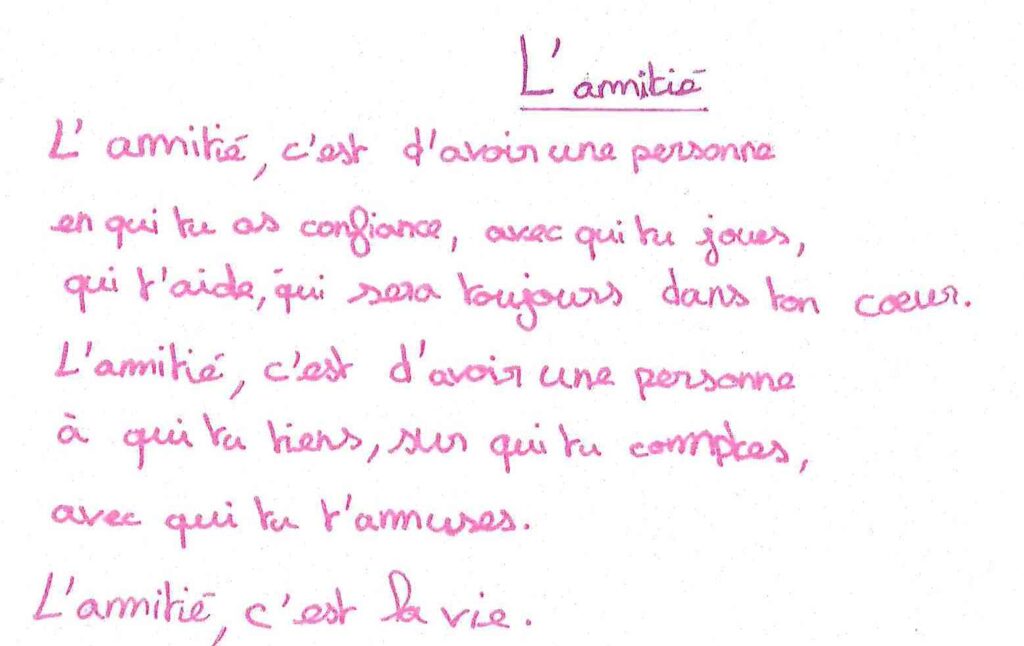 L'amitié
L'amitié, c'est d'avoir une personne
en qui tu as confiance, avec qui tu joues,
qui t'aide, qui sera toujours dans ton coeur.
L'amitié, c'est d'avoir une personne
à qui tu tiens, sur qui tu comptes,
avec qui tu t'amuses.
L'amitié, c'est la vie.